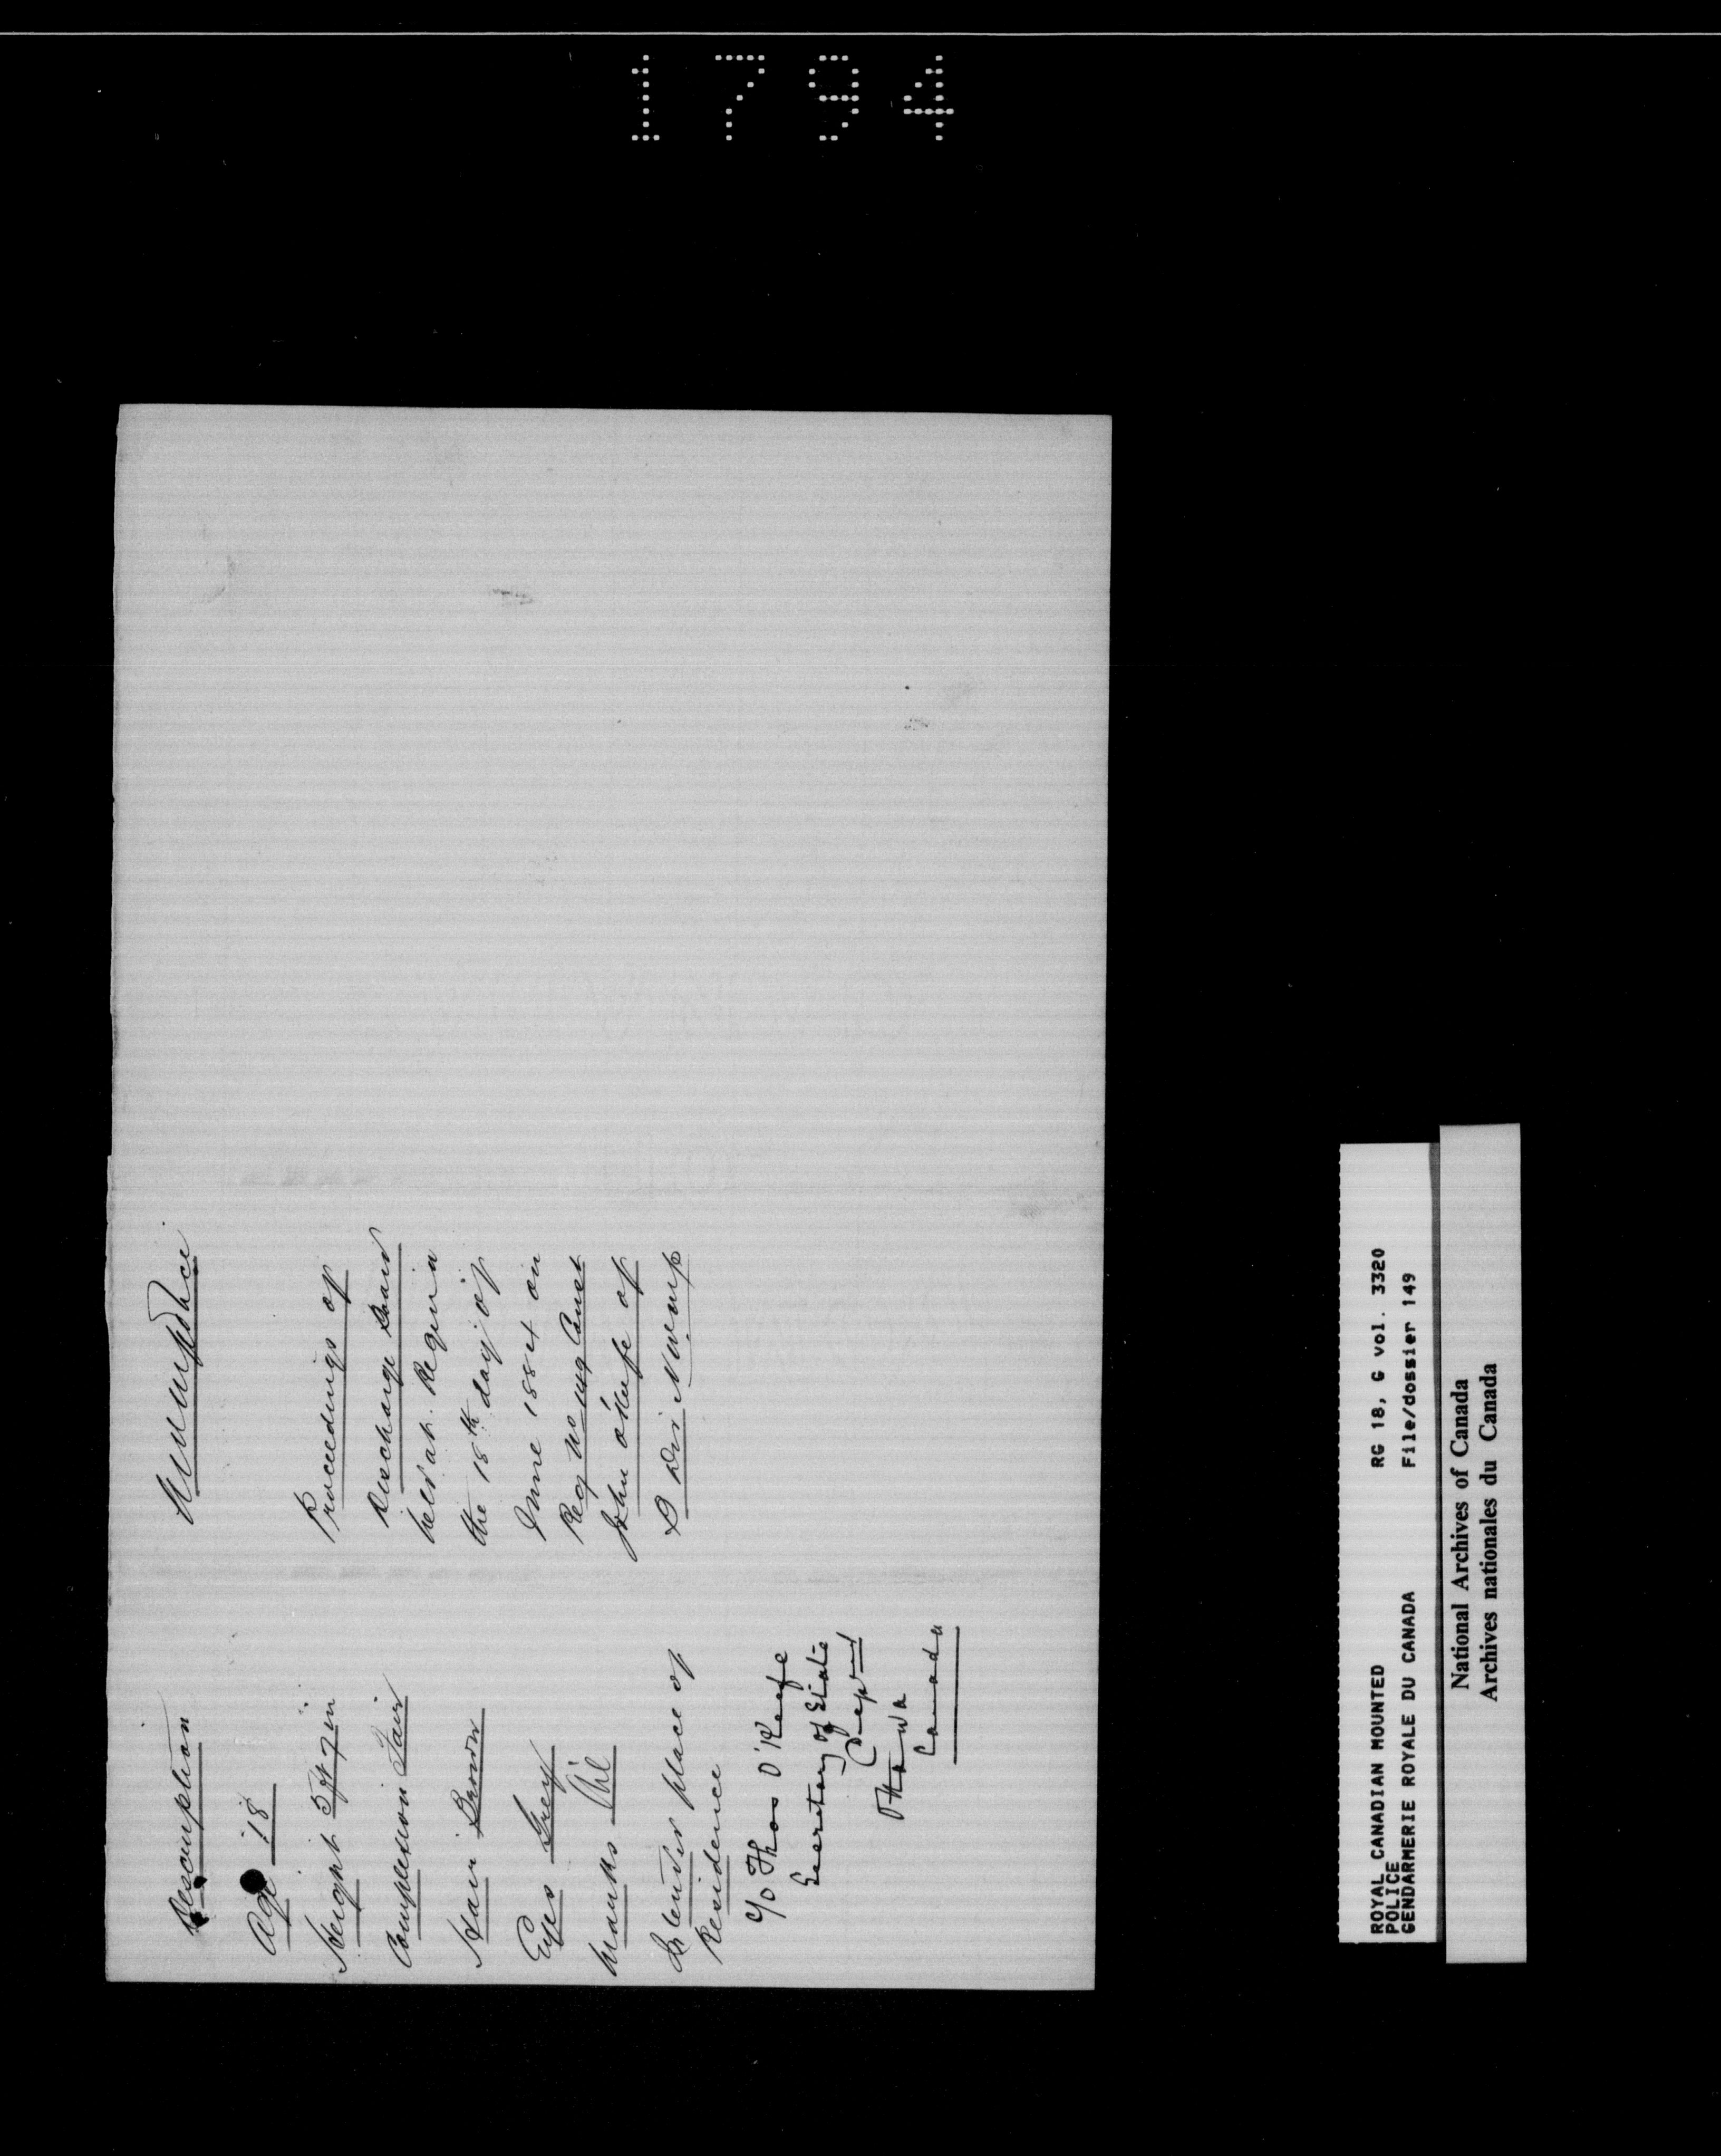 1794
Description
Age 18
Height 5 ft 7 in
Complexion Fair
Hair Brown
Eyes Grey
Marks Nil
Intended place of
Residence
c/o Thos O'Keefe
Secretary of State
Dept
Ottawa
Canada
Proceedings of
Discharge Board
held at Regina
the 18th day of
June 1884 on
Reg No Const
John O'Keefe of
Div N.W.M.P
ROYAL CANADIAN MOUNTED
POLICE
GENDARMERIE ROYALE DU CANADA
RG 18, G vol. 3320
File/dossier 149
National Archives of Canada
Archives nationales du Canada